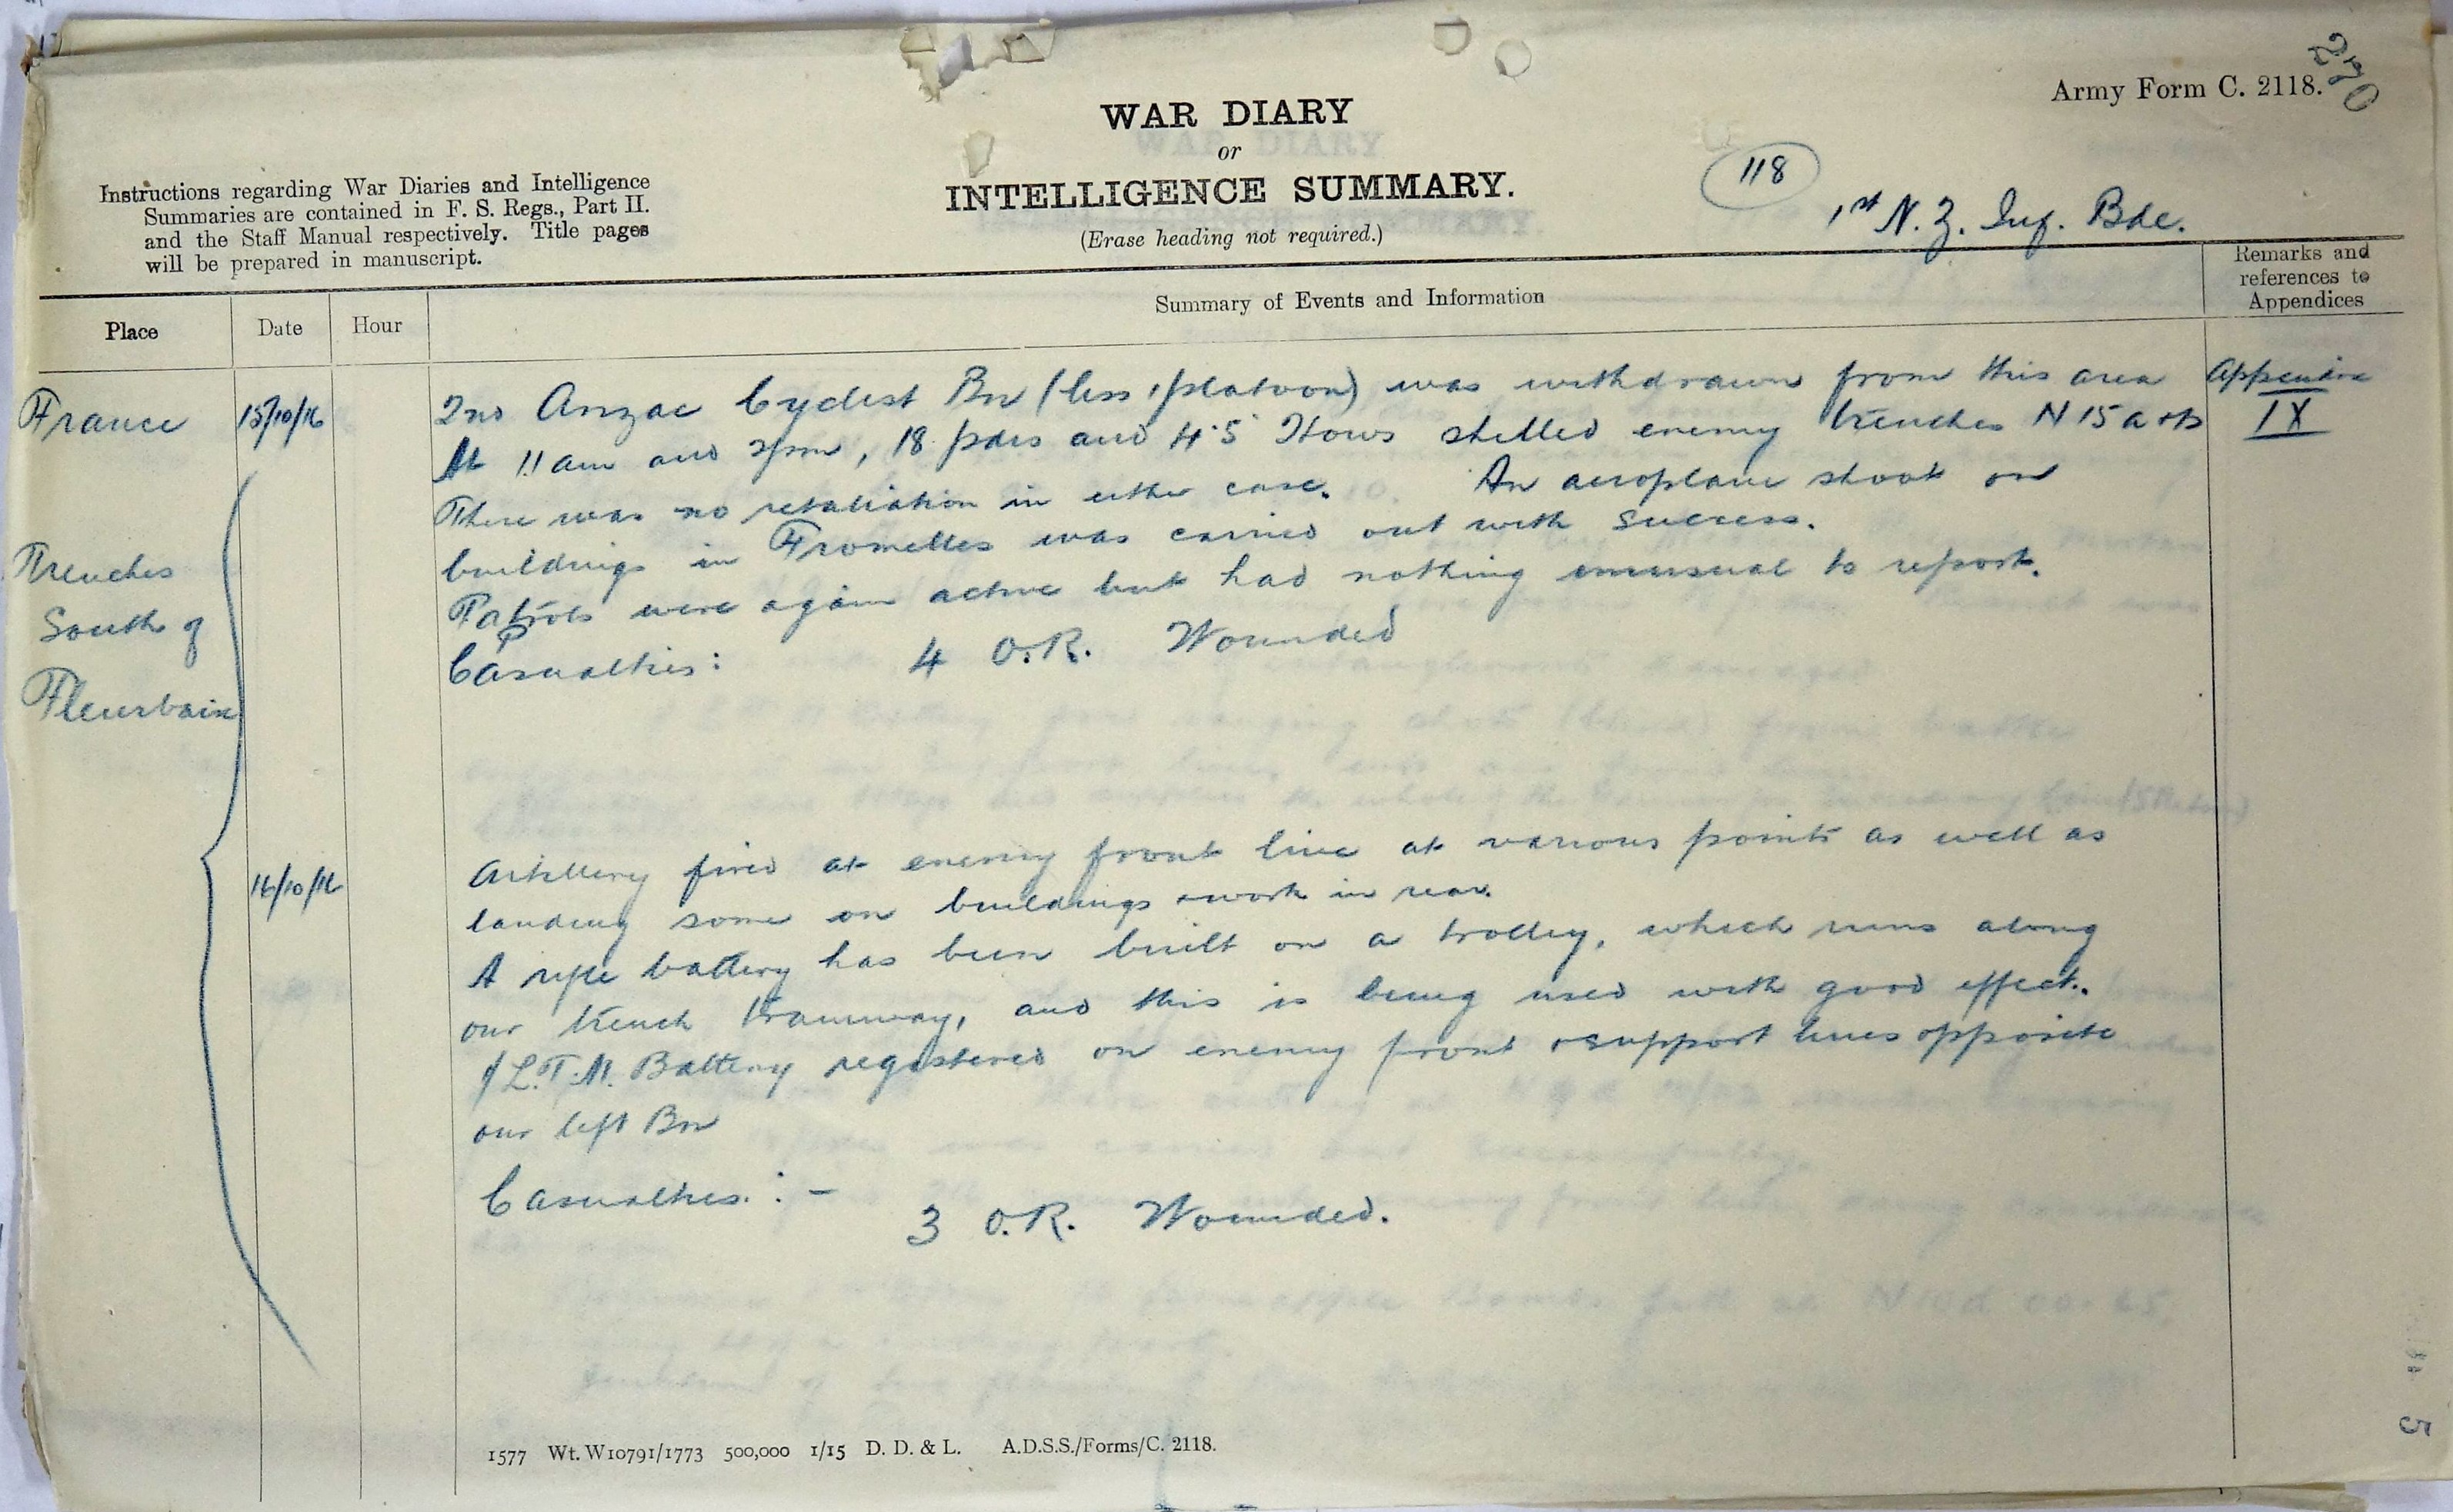 270
Army Form C. 2118.
WAR DIARY
or
INTELLIGENCE SUMMARY.
(Erase heading not required.)
118
1st N. Z. Inf. Bde.
Instructions regarding War Diaries and Intelligence
Summaries are contained in F. S. Regs., Part II.
and the Staff Manual respectively. Title pages
will be prepared in manuscript.
Place
Date
Hour
Summary of Events and Information
Remarks and
references to
Appendices
France
15/10/16
2nd Anzac Cyclist Bn (less 1 platoon) was withdrawn from this area
Appendix
IX
At 11 am and 2pm, 18 pdrs and 4.5 Hows shelled enemy trenches N 15 a + b
There was no retaliation in either case. An aeroplane shoot on
buildings in Fromelles was carried out with success.
Patrols were again active but had nothing unusual to report.
Casualties: 4 O.R. Wounded
Trenches
South of
Fleurbaix
16/10/16
Artillery fired at enemy front line at various points as well as
landing some on buildings + work in rear.
A rifle battery has been built on a trolley, which runs along
our trench tramway, and this is being used with good effect.
1 L.T.M. Battery registered on enemy front + support lines opposite
our left Bn
Casualties. : -
3 O.R. Wounded.
1577 Wt. W10791/1773 500,000 1/15 D. D. & L. A.D.S.S./Forms/C. 2118.